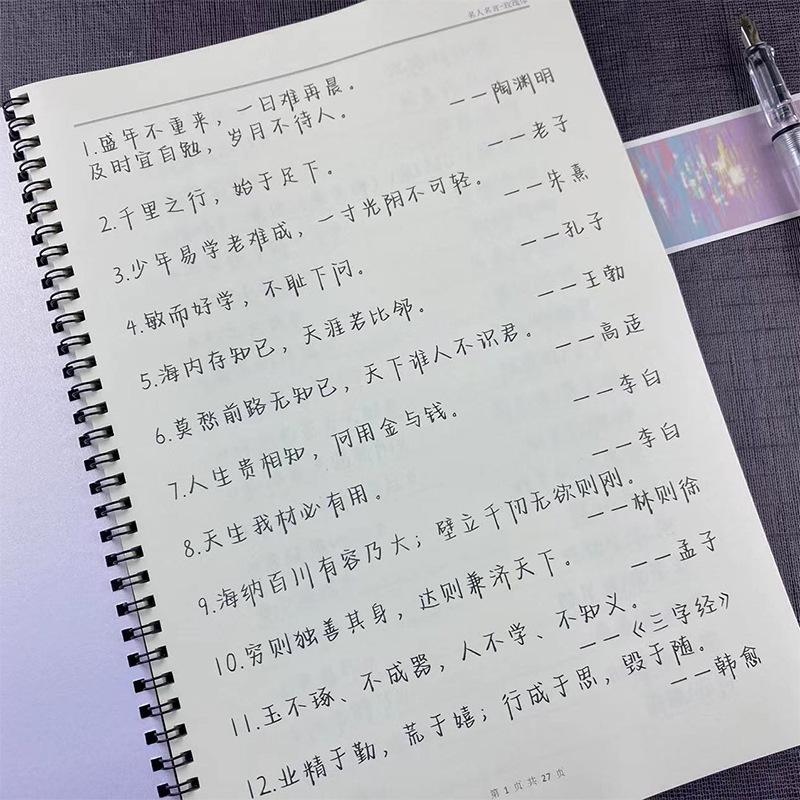 名人名言-玫瑰体
1.盛年不重来，一日难再晨。
及时宜自勉，岁月不待人。
——陶渊明
2.千里之行，始于足下。
——老子
3.少年易学老难成，一寸光阴不可轻。
——朱熹
4.敏而好学，不耻下问。
——孔子
5.海内存知已，天涯若比邻。
——王勃
6.莫愁前路无知已，天下谁人不识君。
——高适
7.人生贵相知，何用金与钱。
——李白
8.天生我材必有用。
——李白
9.海纳百川有容乃大；壁立千仞无欲则刚。
——林则徐
10.穷则独善其身，达则兼济天下。
——孟子
11.玉不琢、不成器，人不学、不知义。
——《三字经》
12.业精于勤，荒于嬉；行成于思，毁于随。
——韩愈
第 1 页 共 27 页